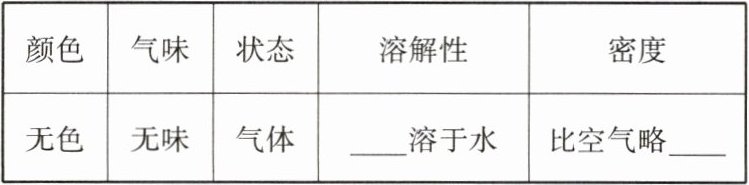 颜色 气味 状态 溶解性 密度
无色 无味 气体 ____溶于水 比空气略____